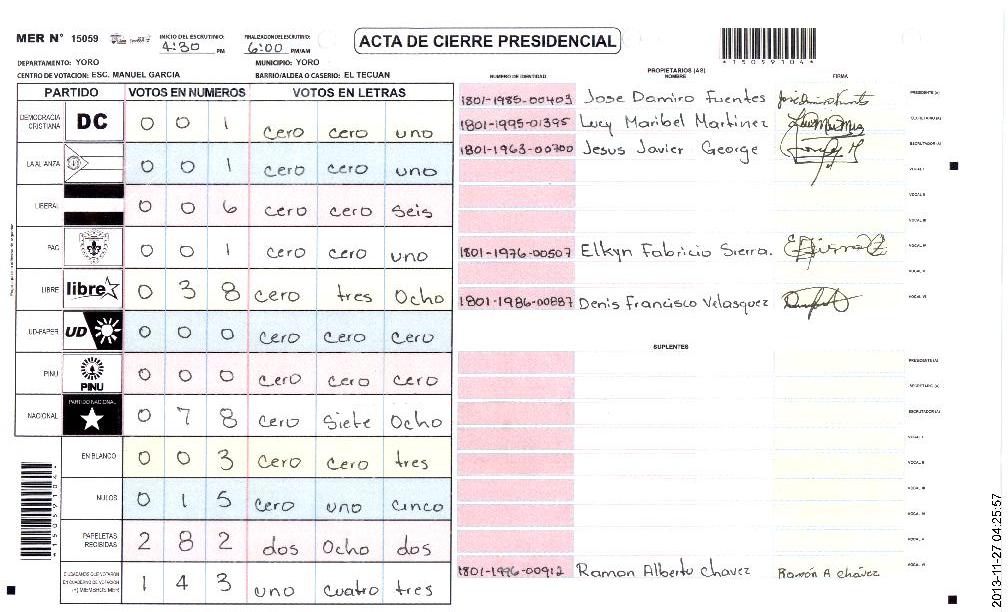 MER N° 15059
INICIO DEL ESCRUTINIO: 4:30 PM
FINALIZACION DEL ESCRUTINIO: 6:00 PM/AM
ACTA DE CIERRE PRESIDENCIAL
DEPARTAMENTO: YORO
MUNICIPIO: YORO
CENTRO DE VOTACION: ESC. MANUEL GARCIA
BARRIO/ALDEA O CASERIO: EL TECUAN
PARTIDO VOTOS EN NUMEROS VOTOS EN LETRAS
DEMOCRACIA CRISTIANA DC 0 0 1 cero cero uno
LA ALIANZA 0 0 1 cero cero uno
LIBERAL 0 0 6 cero cero Seis
PAC 0 0 1 cero cero uno
LIBRE libre 0 3 8 cero tres Ocho
UD-FAPER UD 0 0 0 cero cero cero
PINU PINU 0 0 0 cero cero cero
NACIONAL PARTIDO NACIONAL 0 7 8 cero Siete Ocho
EN BLANCO 0 0 3 cero cero tres
NULOS 0 1 5 cero uno cinco
PAPELETAS RECIBIDAS 2 8 2 dos Ocho dos
CIUDADANOS QUE VOTARON
EN CUADERNO DE VOTACION
(+) MIEMBROS MER 1 4 3 uno cuatro tres
4150591044
PROPIETARIOS (AS)
NUMERO DE IDENTIDAD NOMBRE FIRMA
1801-1985-00403 Jose Damiro Fuentes PRESIDENTE (A)
1801-1995-01395 Lucy Maribel Martinez SECRETARIO (A)
1801-1963-00700 Jesus Javier George ESCRUTADOR (A)
VOCAL I
VOCAL II
VOCAL III
1801-1976-00507 Elkyn Fabricio Sierra. VOCAL IV
VOCAL V
1801-1986-00887 Denis Francisco Velasquez VOCAL VI
SUPLENTES
PRESIDENTE (A)
SECRETARIO (A)
ESCRUTADOR (A)
VOCAL I
VOCAL II
VOCAL III
VOCAL IV
VOCAL V
1801-1996-00912 Ramon Alberto Chavez Ramón A chávez VOCAL VI
2013-11-27 04:25:57